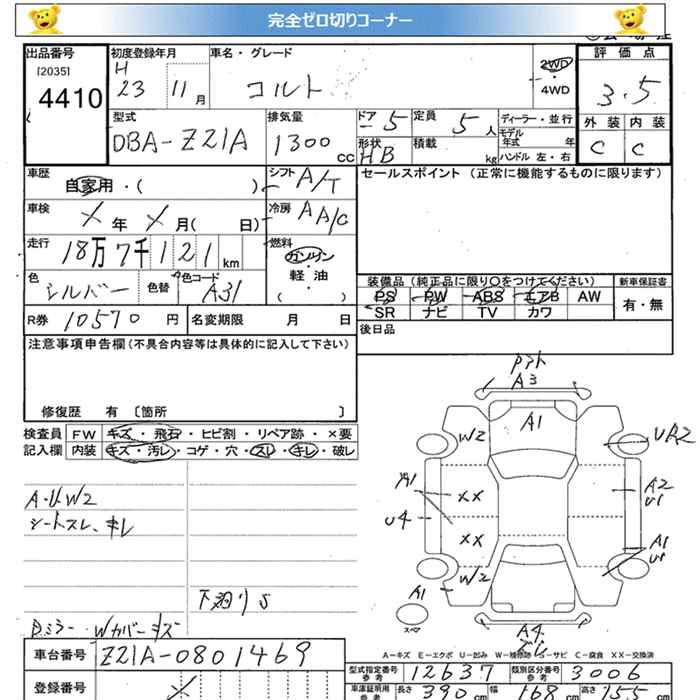 完全ゼロ切りコーナー
出品番号
[2035]
4410
初度登録年月
H
23 11月
車名・グレード
コルト
2WD
・
4WD
評価点
3.5
外装 内装
C C
型式
DBA-Z21A
排気量
1300 CC
ドア 5
形状
HB
定員 5人
積載 kg
ディーラー・並行
モデル
年式 年
ハンドル 左・右
車歴
自家用・( )
シフト A/T
セールスポイント (正常に機能するものに限ります)
車検 X年 X月( 日)
冷房 A A/C
走行 18万7千121km
燃料
ガソリン
軽・油
( )
色
シルバー
色替
色コード
A31
装備品 (純正品に限り○をつけてください)
PS PW ABS エアB AW
SR ナビ TV カワ
新車保証書
有・無
R券 10570円
名変期限 月 日
後日品
注意事項申告欄 (不具合内容等は具体的に記入して下さい)
修復歴 有 〔箇所 〕
検査員
記入欄
FW キズ・飛石・ヒビ割・リペア跡・×要
内装 キズ・汚レ・コゲ・穴・スレ・キレ・破レ
A・U W2
シートスレ、キレ
下廻りS
Dミラー・Wカバーキズ
A3
A1
W2
UA2
A1
XX
A2
U1
U4
XX
A1
W2
A1
スペア
A4
A-キズ E-エクボ U-凹み W-補修跡 S-サビ C-腐食 XX-交換済
車台番号 Z21A-0801469
登録番号
型式指定番号
参考
12637
類別区分番号
参考
3006
車庫証明用
参考
長さ 390cm 幅 168cm 高さ 155cm